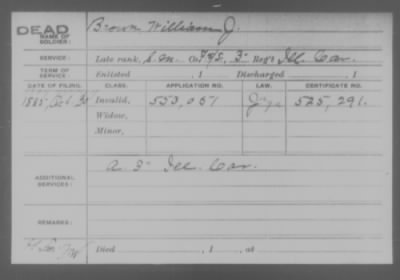 DEAD
NAME OF SOLDIER: Brown William J.
SERVICE: Late rank, Co. F&S, 3" Reg't Ill. Cav.
TERM OF SERVICE: Enlisted , 1 Discharged , 1
DATE OF FILING. CLASS. APPLICATION NO. LAW. CERTIFICATE NO.
1885, Oct 30 Invalid, 553,057 525,291.
Widow,
Minor,
ADDITIONAL SERVICES: A 3" Ill. Cav.
REMARKS:
Died , 1 , at